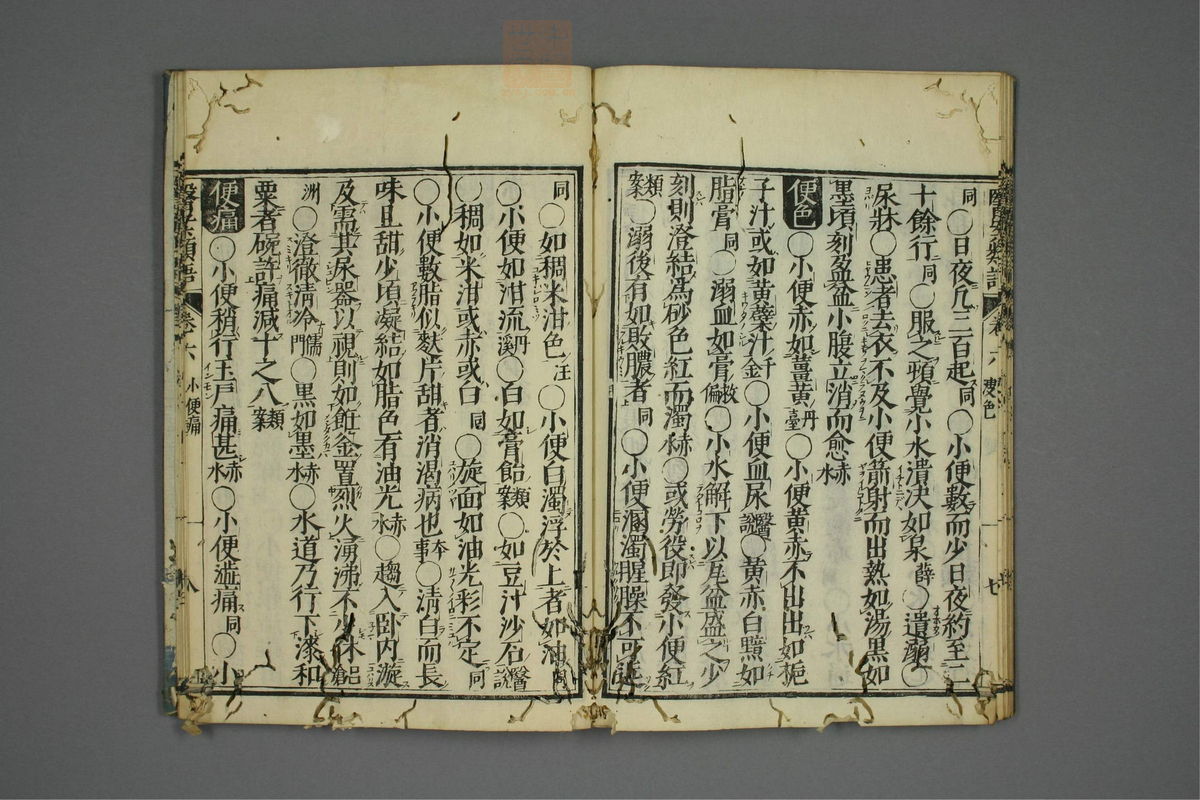 同○日夜凢二三百起同○小便數而少日夜約至二
十餘行同○服之頓覺小水潰决如泉薛○遺溺
尿牀○患者去衣不及小便箭射而出熱如湯黒如
墨頃刻盈盆小腹立消而愈赤水
便色○小便赤如薑黄丹臺○小便黄赤不出出如梔
子汁或如黄蘗汁千金○小便血尿醫説○黄赤白黯如
脂膏同○溺血如膏救偏○小水解下以瓦盆盛之少
刻則澄結為砂色紅而濁赤水○或勞役即發小便紅
類案○溺後有如敗膿者同○小便溷濁腥臊不可
同○如稠米泔色汪○小便白濁浮於上者如油同
○小便如泔流丹溪○白如膏飴類案○如豆汁沙石醫説
○稠如米泔或赤或白同○旋面如油光彩不定同
○小便數脂似麩片甜者消渴病也本事○清白而長
味且甜少頃凝結如脂色有油光赤水○趨入卧内漩
及需其尿器以視則如䤃釜置烈火湧沸不少休倉
洲○澄徹清冷儒門○黒如墨赤水○水道乃行下漆和
粟者碗許痛減十之八類案
便痛○小便稍行玉戸痛甚赤水○小便澁痛同○小
卷六
小便痛
八
溲色
七